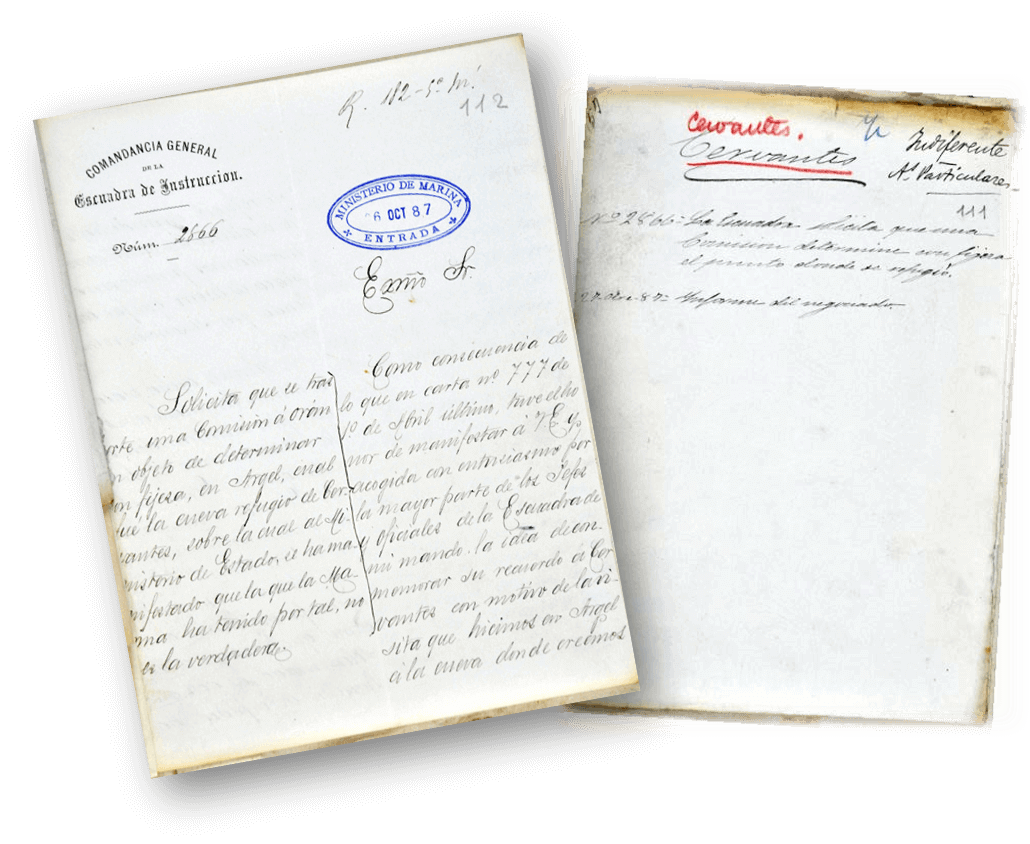 R. 182-5ª M.
112
COMANDANCIA GENERAL
DE LA
Escuadra de Instruccion.
Núm. 2866
MINISTERIO DE MARINA
6 OCT 87
ENTRADA
Exmo Sr.
Solicita que se tras
orte una Comision á Orán
n objeto de determinar
on fijesa, en Argel, cual
fué la cueva refugio de Cer
vantes, sobre la cual al Mi
nisterio de Estado, se ha ma
nifestado que la que la Ma-
rina ha tenido por tal, no
es la verdadera.
Como consecuencia de
lo que en carta nº 777 de
1º de Abril último, tuve el ho
nor de manifestar á V.E. y
acogida con entusiasmo por
la mayor parte de los Jefes
y oficiales de la Escuadra de
mi mando, la idea de con
memorar su recuerdo á Cer
vantes con motivo de la vi-
sita que hicimos en Argel
á la cueva donde creimos
Cervantes.
Cervantes
Indiferente
As. Particulares
111
Nº 2866 - La Escuadra que una
Comision determine con fijesa
el punto donde se refugió.
87 - Informe del negociado.